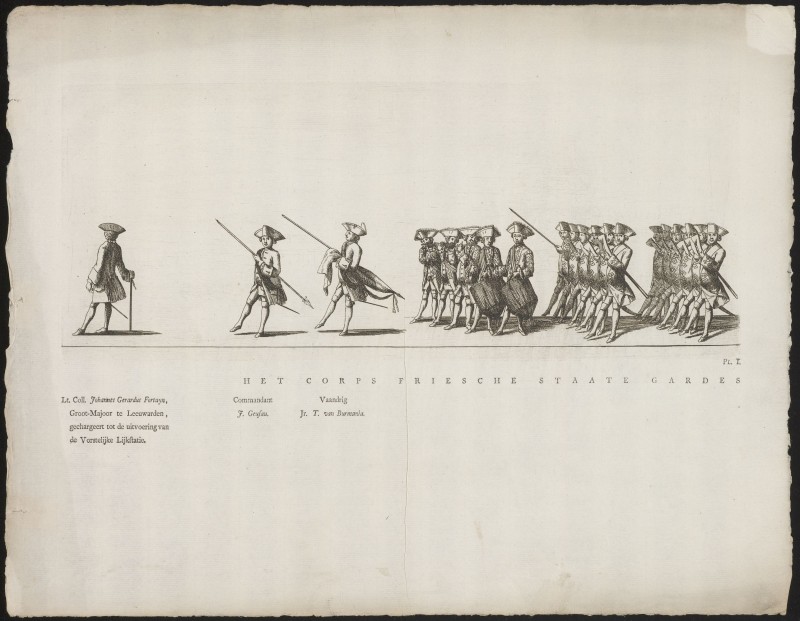 Pl. I.
HET CORPS FRIESCHE STAATE GARDES
Lt. Coll. Johannes Gerardus Fortuyn,
Groot-Majoor te Leeuwarden,
gechargeert tot de uitvoering van
de Vorstelijke Lijkstatie.
Commandant
J. Grasau.
Vaandrig
Jr. T. van Burmania.